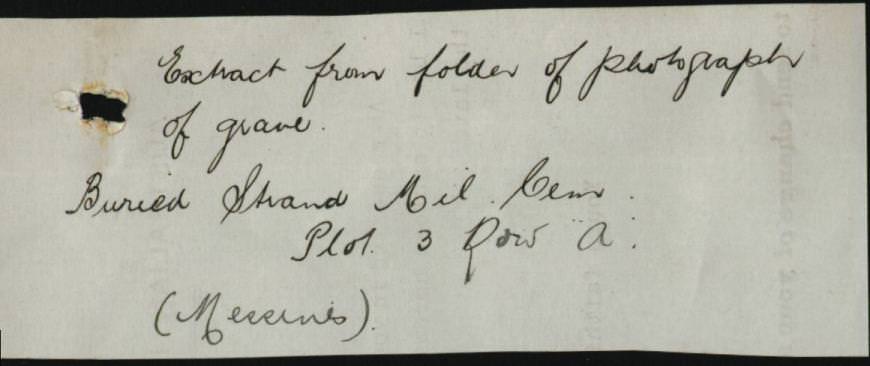 Extract from folder of photograph
of grave.
Buried Strand Mil. Cem.
Plot. 3 Row "A".
(Messines).